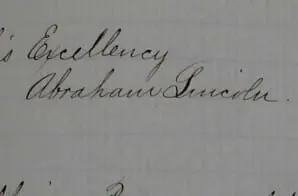 's Excellency
Abraham Lincoln.